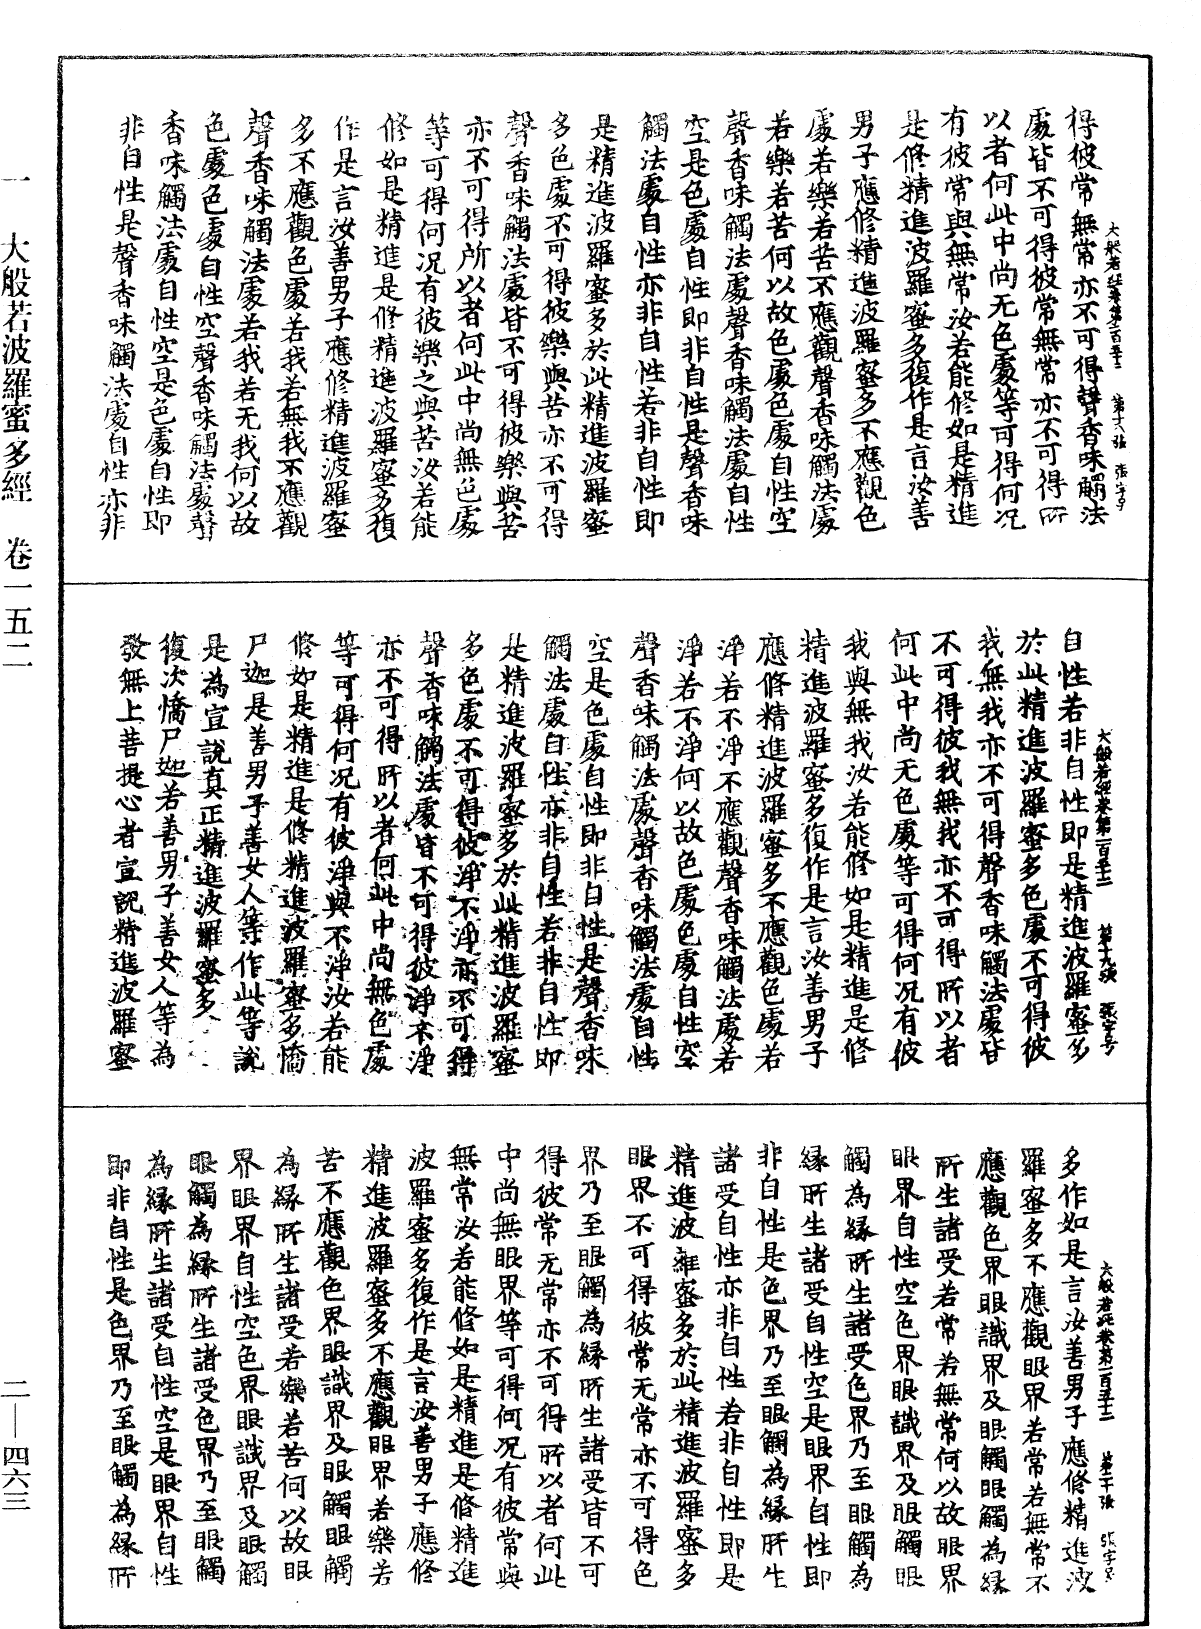 大般若經卷第一百五十二 第十八張 張字号
得彼常無常亦不可得聲香味觸法
處皆不可得彼常無常亦不可得所
以者何此中尚无色處等可得何况
有彼常與無常汝若能修如是精進
是修精進波羅蜜多復作是言汝善
男子應修精進波羅蜜多不應觀色
處若樂若苦不應觀聲香味觸法處
若樂若苦何以故色處色處自性空
聲香味觸法處聲香味觸法處自性
空是色處自性即非自性是聲香味
觸法處自性亦非自性若非自性即
是精進波羅蜜多於此精進波羅蜜
多色處不可得彼樂與苦亦不可得
聲香味觸法處皆不可得彼樂與苦
亦不可得所以者何此中尚無色處
等可得何况有彼樂之與苦汝若能
修如是精進是修精進波羅蜜多復
作是言汝善男子應修精進波羅蜜
多不應觀色處若我若無我不應觀
聲香味觸法處若我若无我何以故
色處色處自性空聲香味觸法處聲
香味觸法處自性空是色處自性即
非自性是聲香味觸法處自性亦非
大般若經卷第一百五十二 第十九張 張字号
自性若非自性即是精進波羅蜜多
於此精進波羅蜜多色處不可得彼
我無我亦不可得聲香味觸法處皆
不可得彼我無我亦不可得所以者
何此中尚无色處等可得何况有彼
我與無我汝若能修如是精進是修
精進波羅蜜多復作是言汝善男子
應修精進波羅蜜多不應觀色處若
淨若不淨不應觀聲香味觸法處若
淨若不淨何以故色處色處自性空
聲香味觸法處聲香味觸法處自性
空是色處自性即非自性是聲香味
觸法處自性亦非自性若非自性即
是精進波羅蜜多於此精進波羅蜜
多色處不可得彼淨不淨亦不可得
聲香味觸法處皆不可得彼淨不淨
亦不可得所以者何此中尚無色處
等可得何况有彼淨與不淨汝若能
修如是精進是修精進波羅蜜多憍
尸迦是善男子善女人等作此等說
是為宣說真正精進波羅蜜多
復次憍尸迦若善男子善女人等為
發無上菩提心者宣說精進波羅蜜
大般若經卷第一百五十二 第二十張 張字号
多作如是言汝善男子應修精進波
羅蜜多不應觀眼界若常若無常不
應觀色界眼識界及眼觸眼觸為緣
所生諸受若常若無常何以故眼界
眼界自性空色界眼識界及眼觸眼
觸為緣所生諸受色界乃至眼觸為
緣所生諸受自性空是眼界自性即
非自性是色界乃至眼觸為緣所生
諸受自性亦非自性若非自性即是
精進波羅蜜多於此精進波羅蜜多
眼界不可得彼常无常亦不可得色
界乃至眼觸為緣所生諸受皆不可
得彼常无常亦不可得所以者何此
中尚無眼界等可得何况有彼常與
無常汝若能修如是精進是修精進
波羅蜜多復作是言汝善男子應修
精進波羅蜜多不應觀眼界若樂若
苦不應觀色界眼識界及眼觸眼觸
為緣所生諸受若樂若苦何以故眼
界眼界自性空色界眼識界及眼觸
眼觸為緣所生諸受色界乃至眼觸
為緣所生諸受自性空是眼界自性
即非自性是色界乃至眼觸為緣所
一 大般若波羅蜜多經 卷一五二
二—四六三